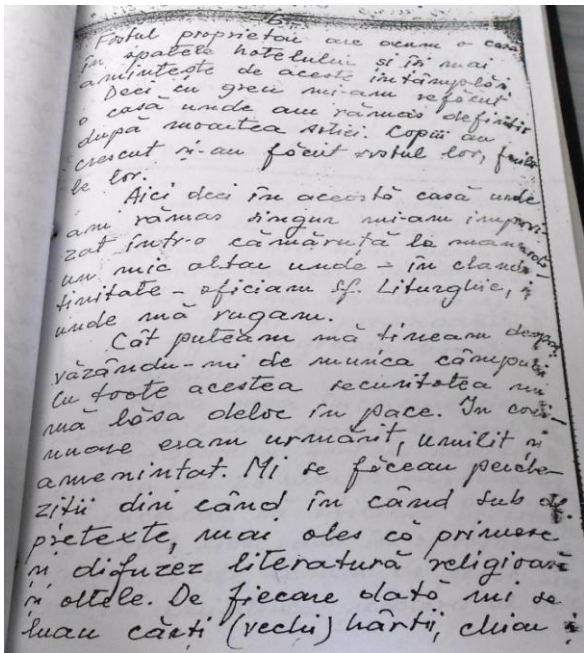 6
Fostul proprietar are acum o casă
în spatele hotelului și îmi mai
amintește de aceste întâmplări.
Deci cu greu mi-am refăcut
o casă unde am rămas definitiv
după moartea soției. Copiii au
crescut și-au făcut rostul lor, famili-
le lor.
Aici deci în această casă unde
am rămas singur mi-am improvi-
zat într-o cămăruță la mansardă
un mic altar unde - în clandes-
tinitate - oficiam sf. Liturghie, și
unde mă rugam.
Cât puteam mă țineam deoparte
văzându-mi de munca câmpului
Cu toate acestea securitatea nu
mă lăsa deloc în pace. În conti-
nuare eram urmărit, umilit și
amenințat. Mi se făceau perche-
ziții din când în când sub
pretexte, mai ales că primesc
și difuzez literatură religioasă
și altele. De fiecare dată mi se
luau cărți (vechi) hârtii, chiar